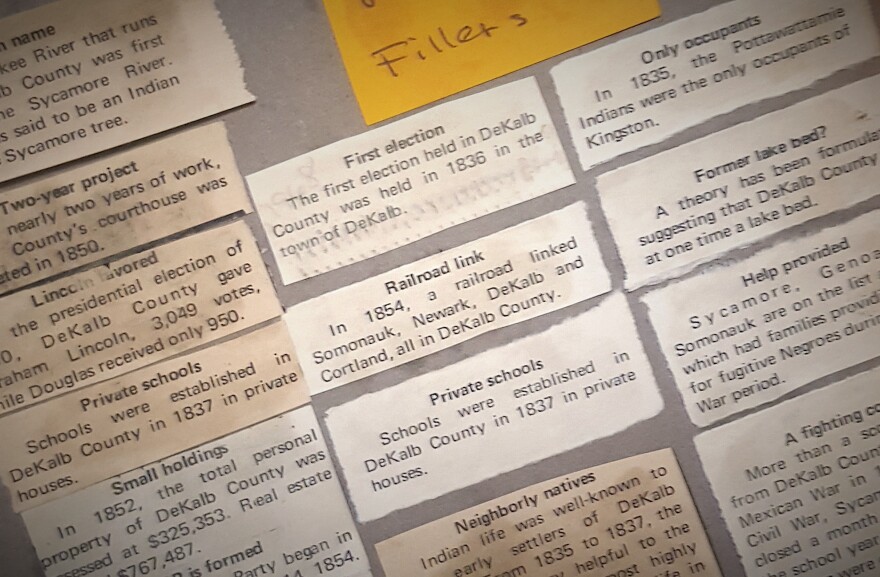 Fillers
n name
kee River that runs
lb County was first
he Sycamore River.
s said to be an Indian
Sycamore tree.
Two-year project
nearly two years of work,
County's courthouse was
ted in 1850.
Lincoln favored
the presidential election of
0, DeKalb County gave
raham Lincoln, 3,049 votes,
hile Douglas received only 950.
Private schools
Schools were established in
DeKalb County in 1837 in private
houses.
Small holdings
In 1852, the total personal
property of DeKalb County was
sessed at $325,353. Real estate
$767,487.
is formed
Party began in
1854.
First election
The first election held in DeKalb
County was held in 1836 in the
town of DeKalb.
Railroad link
In 1854, a railroad linked
Somonauk, Newark, DeKalb and
Cortland, all in DeKalb County.
Private schools
Schools were established in
DeKalb County in 1837 in private
houses.
Neighborly natives
Indian life was well-known to
early settlers of DeKalb
From 1835 to 1837, the
helpful to the
most highly
life in
Only occupants
In 1835, the Pottawattamie
Indians were the only occupants of
Kingston.
Former lake bed?
A theory has been formula
suggesting that DeKalb County
at one time a lake bed.
Help provided
Sycamore, Genoa
Somonauk are on the list
which had families providi
for fugitive Negroes durin
War period.
A fighting co
More than a sco
from DeKalb Coun
Mexican War in 1
Civil War, Sycam
closed a month
school year
were